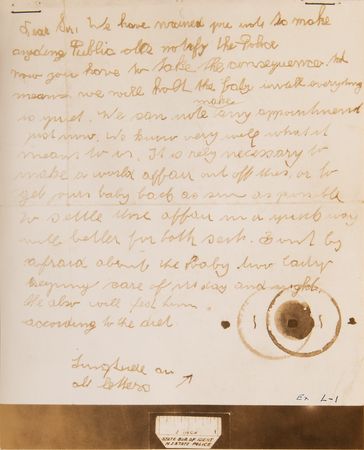 Dear Sir, We have warned you note to make
anyding Public also notify the Police
now you have to take the consequences. ht
means we will holt the baby untill everyding
is quiet. We can note make any appointment
just now. We know very well what it
means to us. It is rely necessary to
make a world affair out off this, or to
get yours baby back as son as possible
to settle those affair in a quick way
will better for both seits. Dont by
afraid about the baby two lady
keeping care of its day and night.
She also will fed him
according to the diet.
Singtuere on
all letters
Ex L-1
1 INCH
STATE BUR. OF IDENT.
N.J. STATE POLICE